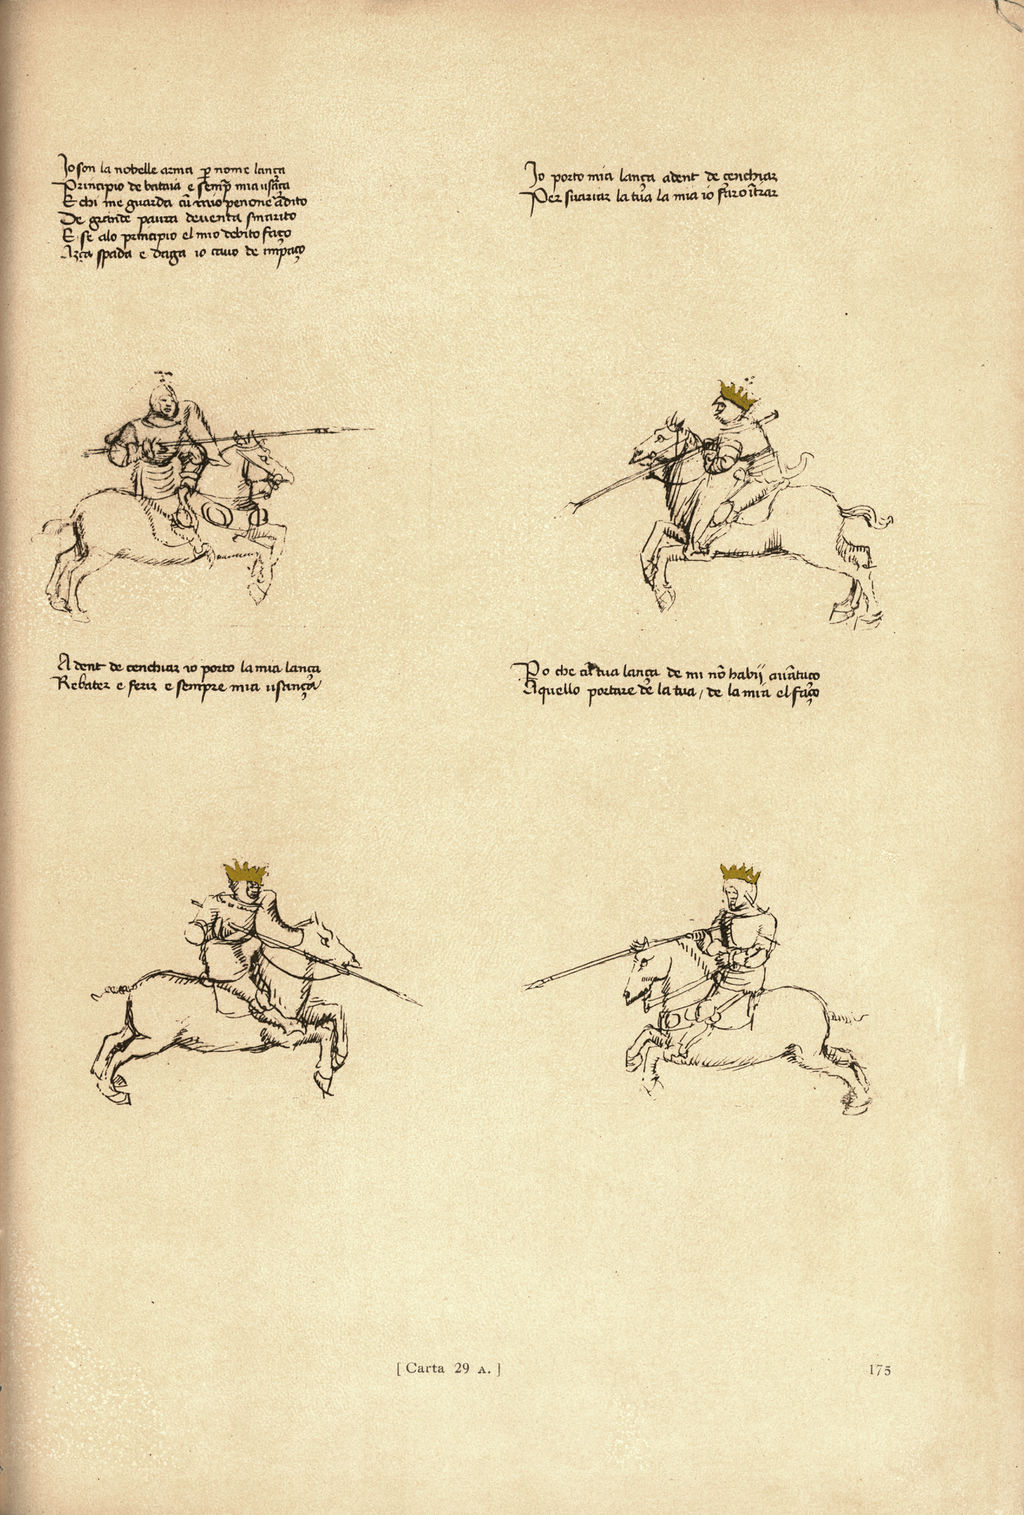 Io son la nobelle arma p nome lança
Principio de bataia e semp mia usãça
E chi me guarda cũ mio penone ãdito
De grande paura deventa smarito
E se alo principio el mio debito faço
Aza spada e daga io cavo de impaço
Io porto mia lança a dent de cenchiar
Per suariar la tua la mia io faro ĩtrar
A dent de cenchiar io porto la mia lança
Rebater e ferir e sempre mia usança
Po che la tua lança de mi nõ habij avãtaço
Aquello portare de la tua / de la mia el faço
[ Carta 29 A. ]
175